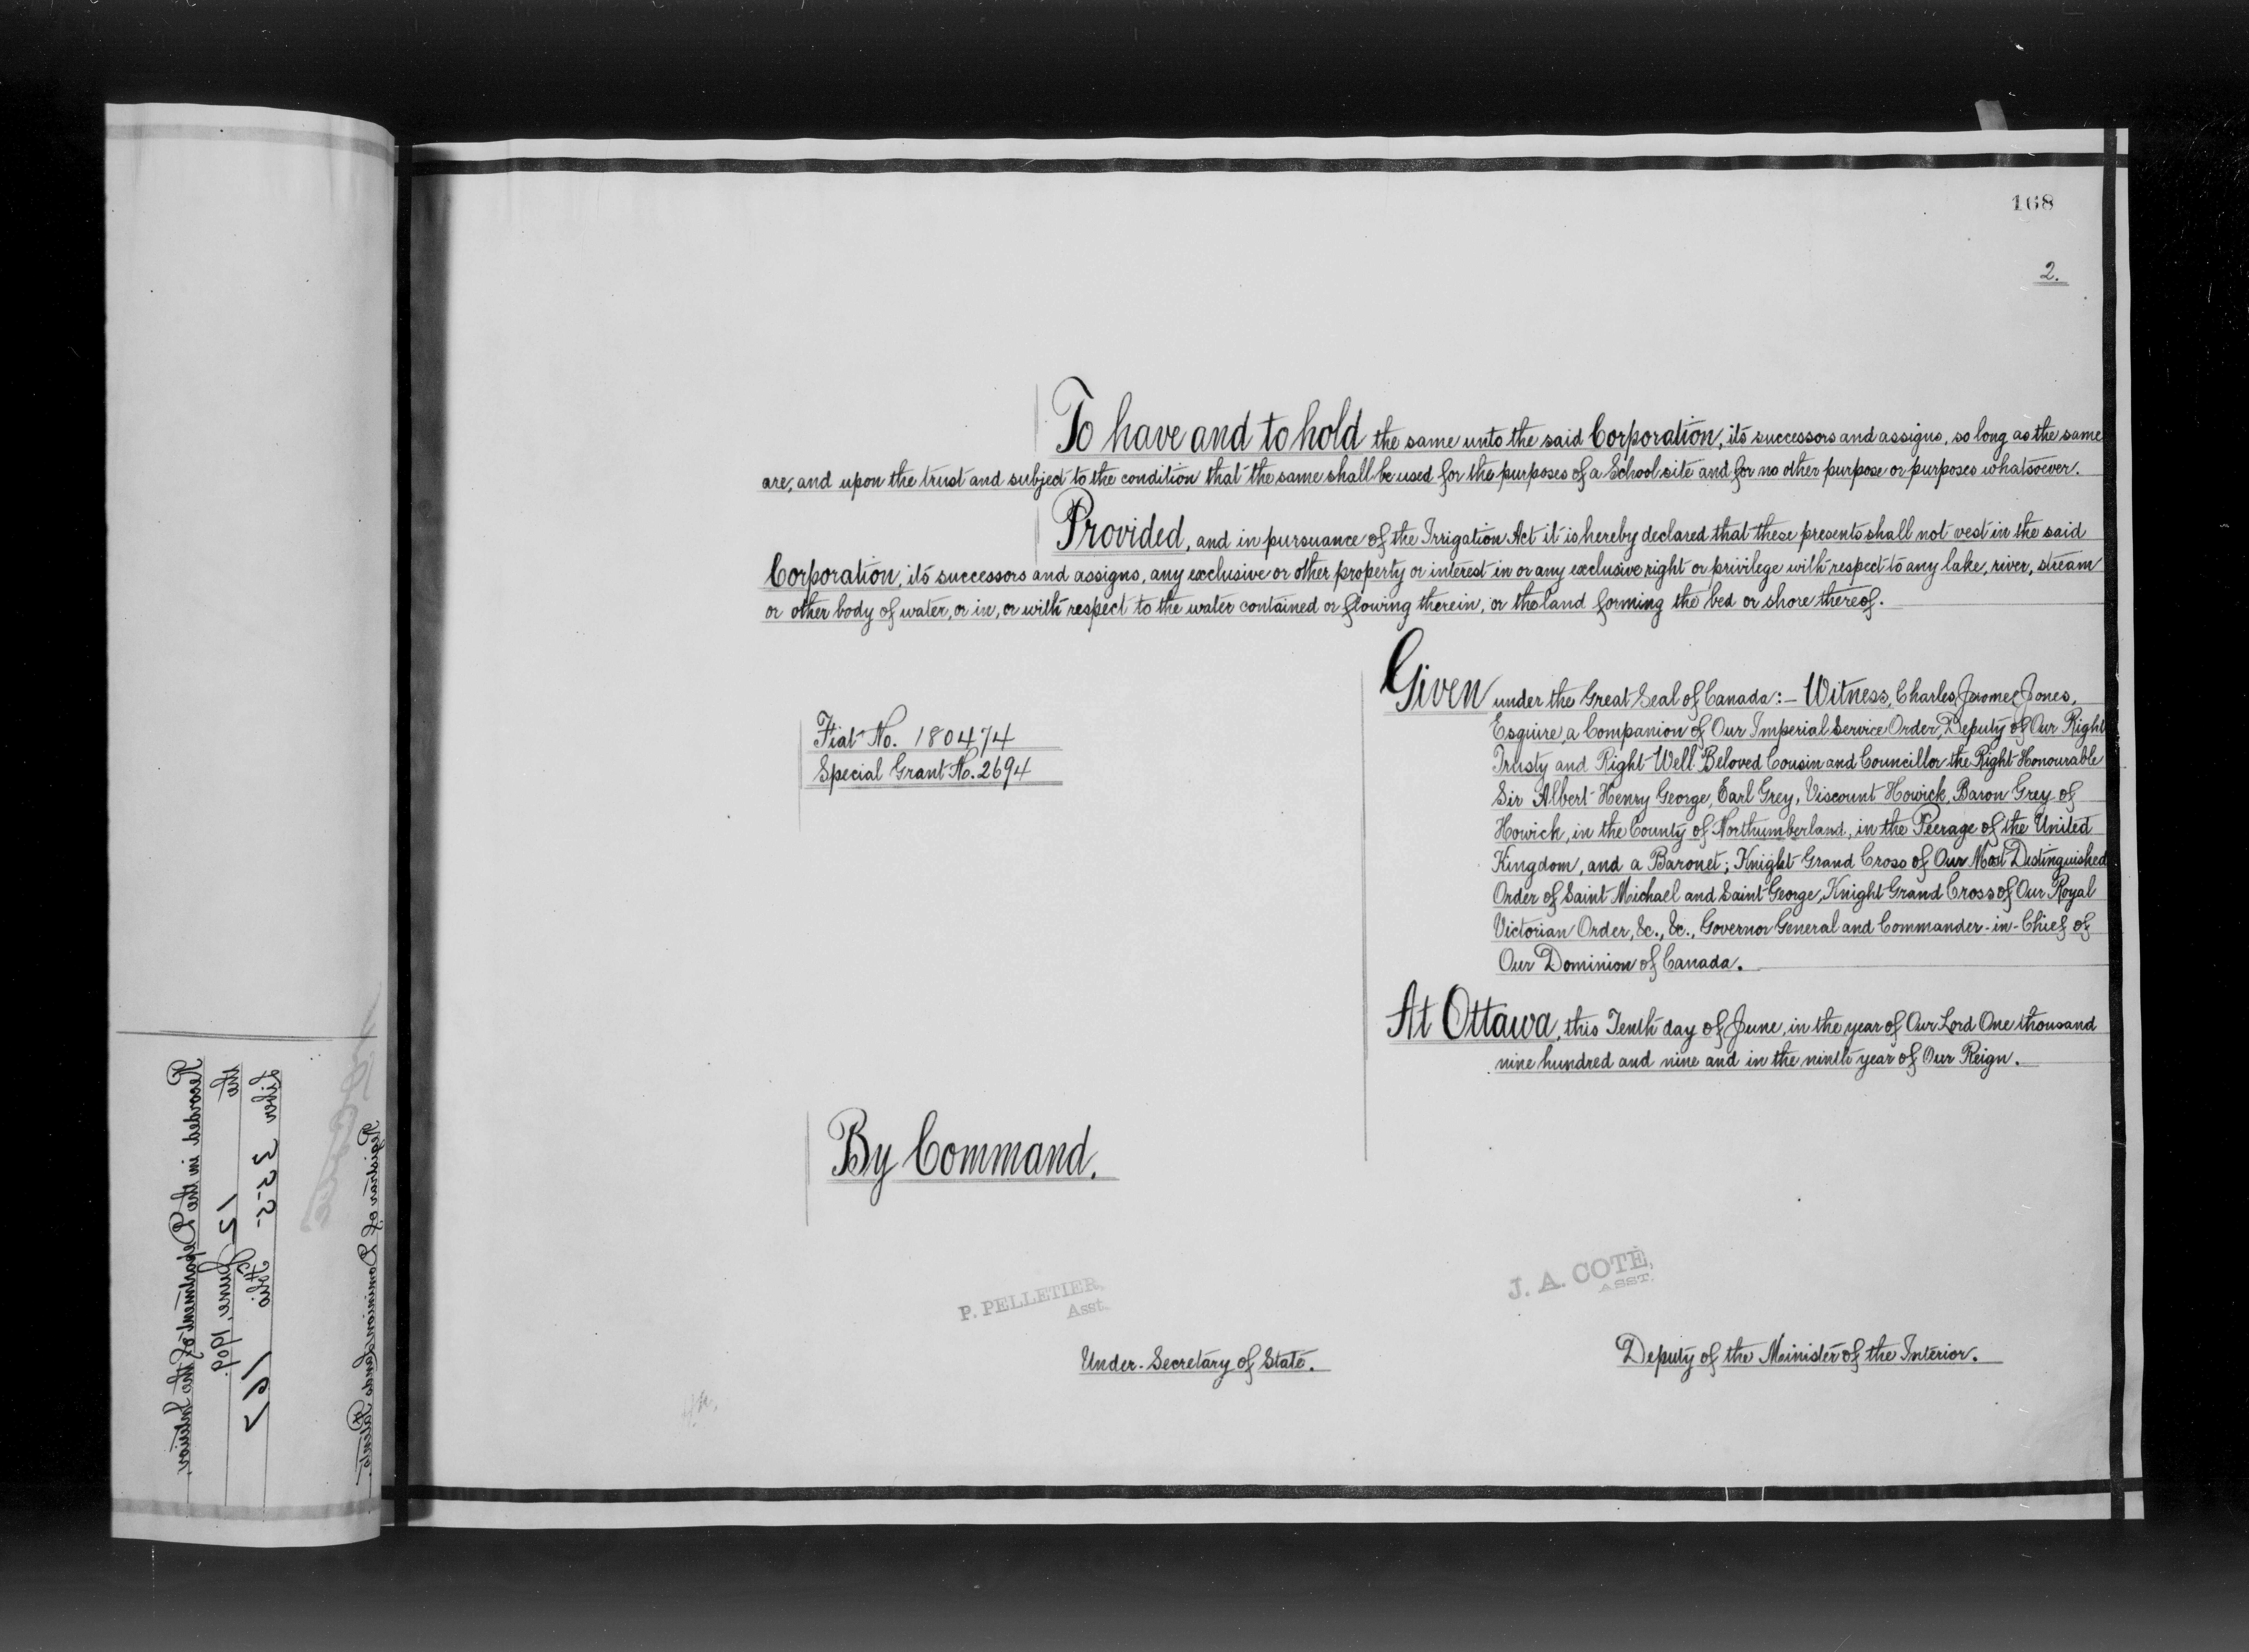 168
2.
To have and to hold the same unto the said Corporation, its successors and assigns, so long as the same
are, and upon the trust and subject to the condition that the same shall be used for the purposes of a School site and for no other purpose or purposes whatsoever.
Provided, and in pursuance of the Irrigation Act it is hereby declared that these presents shall not vest in the said
Corporation, its successors and assigns, any exclusive or other property or interest in or any exclusive right or privilege with respect to any lake, river, stream
or other body of water, or in, or with respect to the water contained or flowing therein, or the land forming the bed or shore thereof.
Fiat No. 180474
Special Grant No. 2694
Given under the Great Seal of Canada:- Witness, Charles Jerome Jones,
Esquire, a Companion of Our Imperial Service Order, Deputy of Our Right
Trusty and Right Well Beloved Cousin and Councillor the Right Honourable
Sir Albert Henry George, Earl Grey, Viscount Howick, Baron Grey of
Howick, in the County of Northumberland, in the Peerage of the United
Kingdom, and a Baronet; Knight Grand Cross of Our Most Distinguished
Order of Saint Michael and Saint George, Knight Grand Cross of Our Royal
Victorian Order, &c., &c., Governor General and Commander-in-Chief of
Our Dominion of Canada.
At Ottawa, this Tenth day of June, in the year of Our Lord One thousand
nine hundred and nine and in the ninth year of Our Reign.
By Command.
P. PELLETIER,
Asst.
Under-Secretary of State.
J. A. COTÉ,
ASST.
Deputy of the Minister of the Interior.
Recorded in the Department of the Interior,
the 12 June, 1909.
Liber 355 Folio 167
Registrar of Dominion Lands Patents.